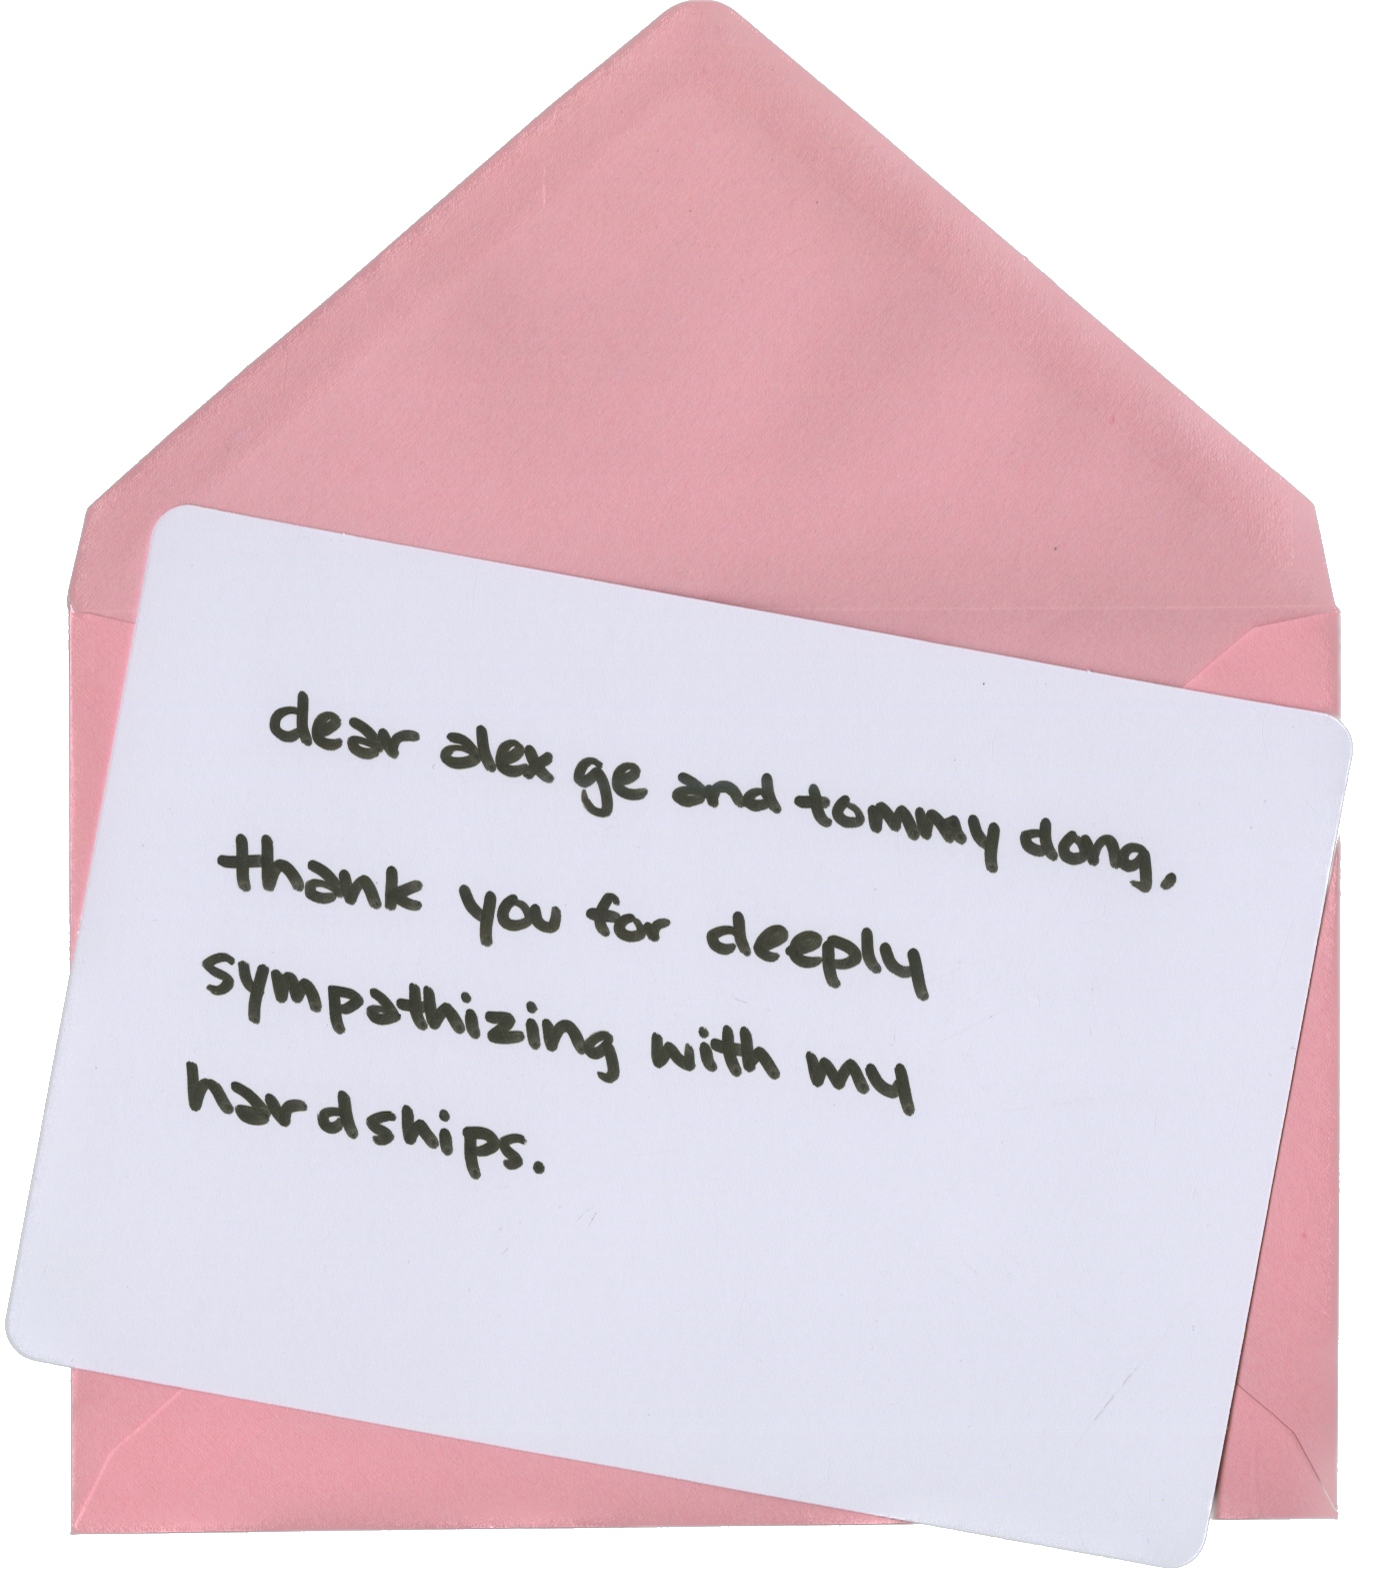 dear alex ge and tommy dong,
thank you for deeply
sympathizing with my
hardships.